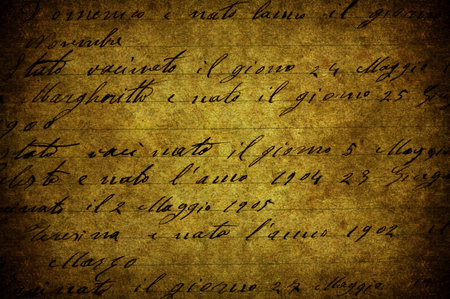 Domenico e nato lanno il giorno
Novembre
Stato vacinato il giorno 24 Maggio
Margheritto e nato il giorno 25
900
stato vaci nato il giorno 5 Maggio
e nato l'anno 1904 23
il 2 Maggio 1905
Teresina e nato l'anno 1902
Marzo
il giorno 24 Maggio